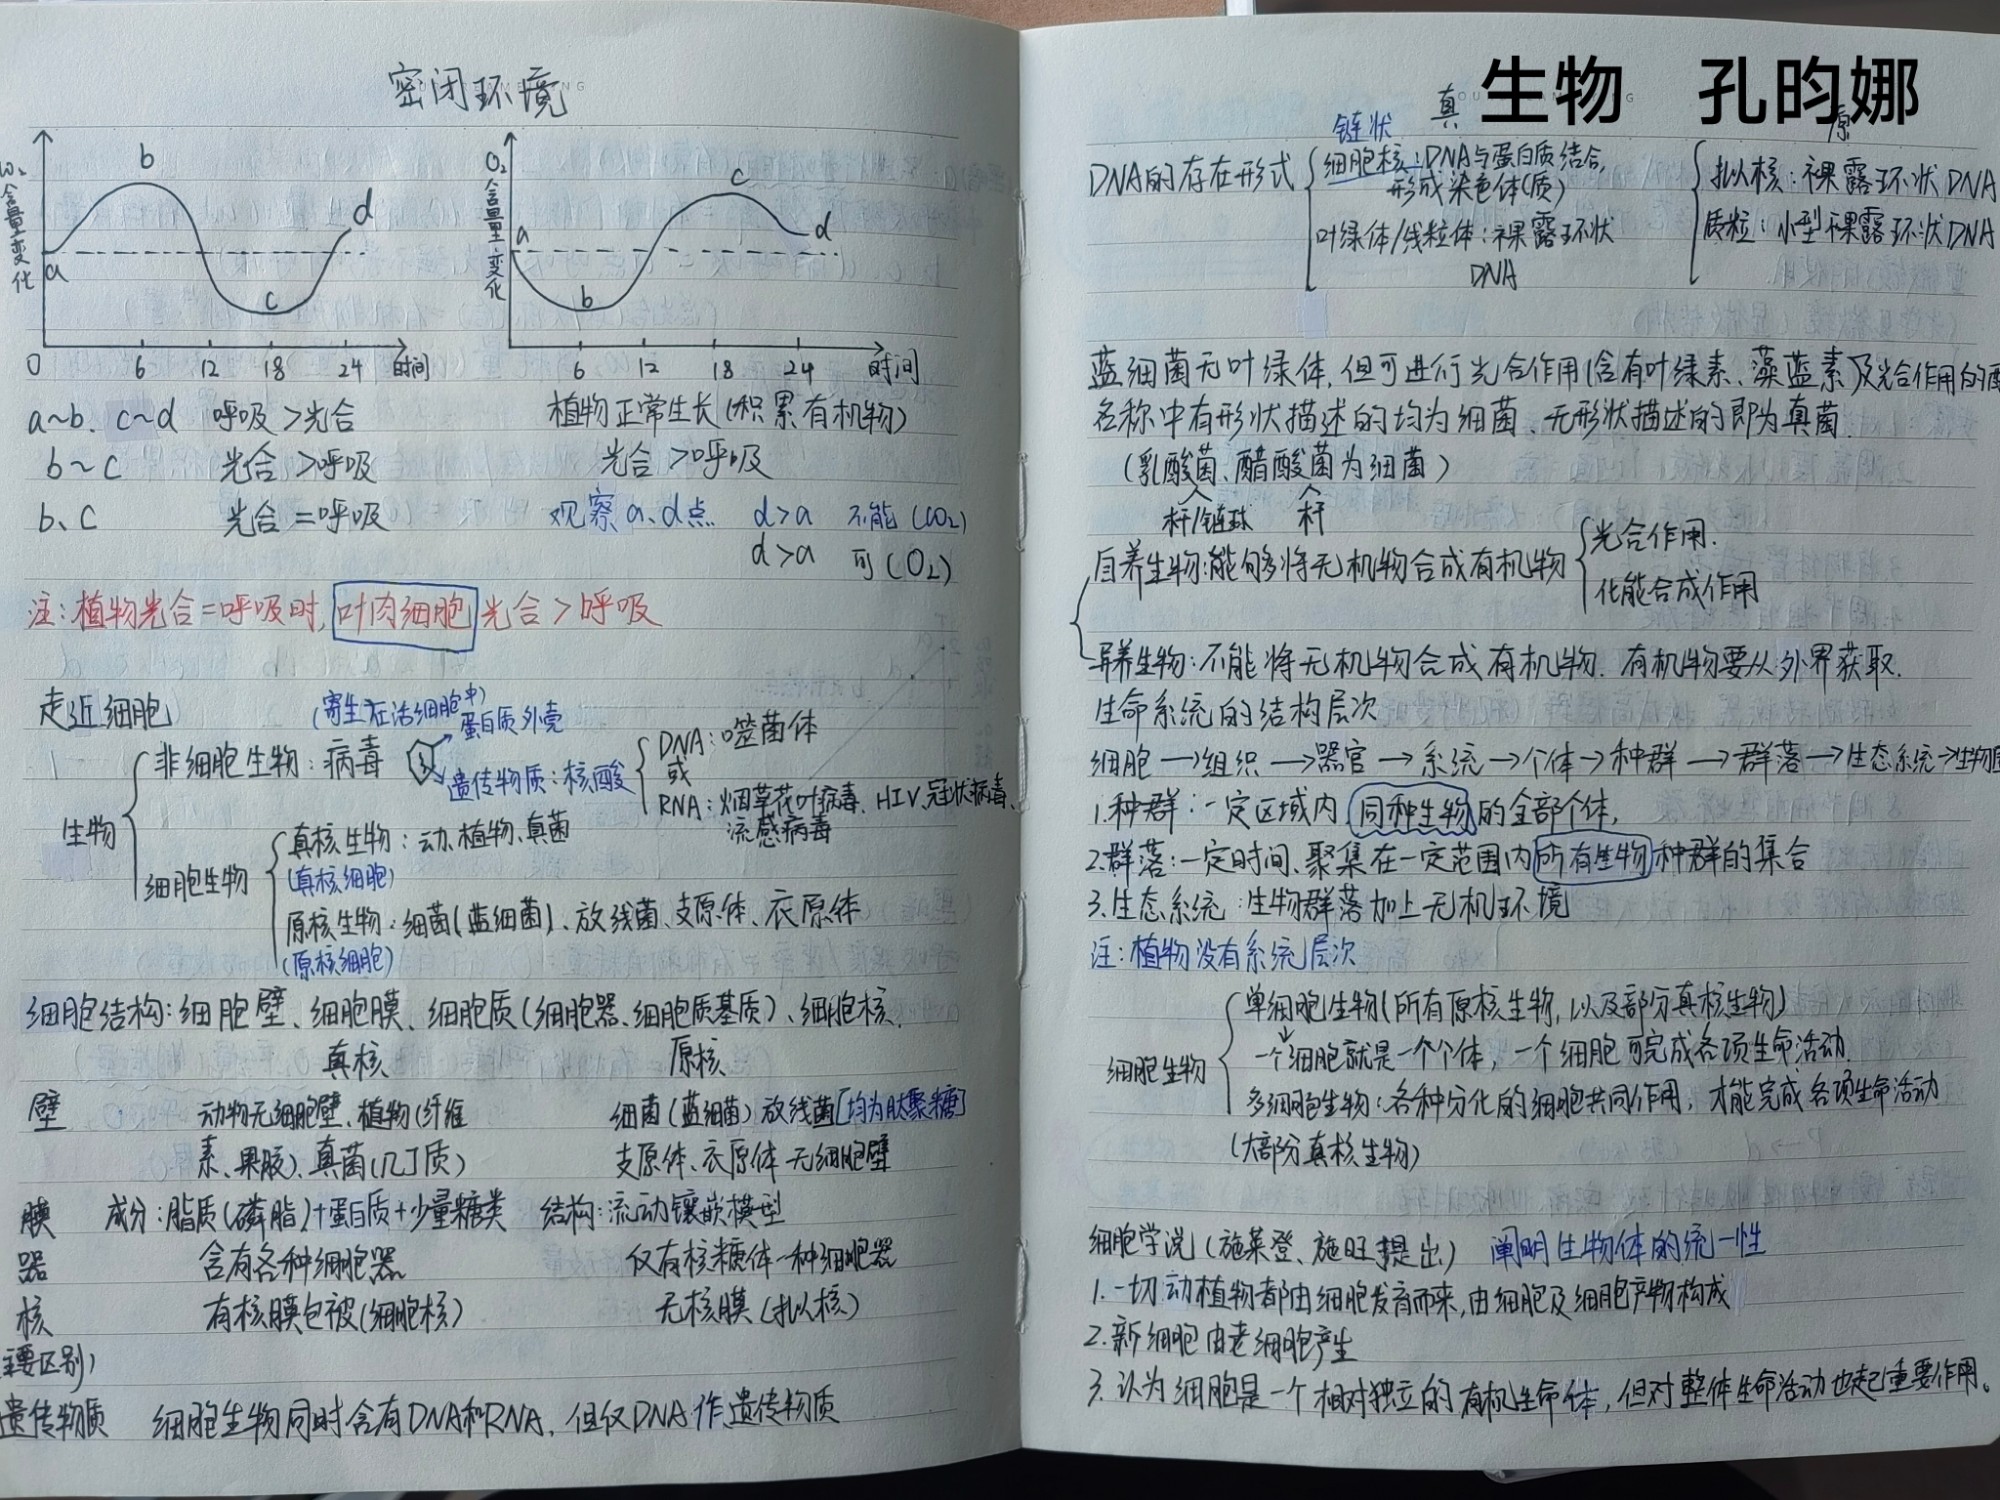 生物 孔昀娜
密闭环境
CO₂含量变化
b
d
a
c
0 6 12 18 24 时间
O₂含量变化
a
c
d
b
6 12 18 24 时间
a~b、c~d 呼吸>光合
植物正常生长(积累有机物)
b~c 光合>呼吸
光合>呼吸
b、c 光合=呼吸
观察a、d点 d>a 不能(CO₂)
d>a 可(O₂)
注:植物光合=呼吸时,叶肉细胞光合>呼吸
走近细胞
(寄生在活细胞中)
生物
非细胞生物:病毒
蛋白质外壳
遗传物质:核酸
DNA:噬菌体
或
RNA:烟草花叶病毒、HIV、冠状病毒、
流感病毒
细胞生物
真核生物:动、植物、真菌
(真核细胞)
原核生物:细菌(蓝细菌)、放线菌、支原体、衣原体
(原核细胞)
细胞结构:细胞壁、细胞膜、细胞质(细胞器、细胞质基质)、细胞核.
真核 原核
壁 动物无细胞壁、植物(纤维 细菌(蓝细菌)放线菌[均为肽聚糖]
素、果胶)、真菌(几丁质) 支原体、衣原体无细胞壁
膜 成分:脂质(磷脂)+蛋白质+少量糖类 结构:流动镶嵌模型
器 含有各种细胞器 仅有核糖体一种细胞器
核 有核膜包被(细胞核) 无核膜(拟核)
主要区别)
遗传物质 细胞生物同时含有DNA和RNA,但仅DNA作遗传物质
真 原
链状
DNA的存在形式
细胞核:DNA与蛋白质结合,
形成染色体(质)
叶绿体/线粒体:裸露环状
DNA
拟核:裸露环状DNA
质粒:小型裸露环状DNA
蓝细菌无叶绿体,但可进行光合作用(含有叶绿素、藻蓝素及光合作用的酶
名称中有形状描述的均为细菌、无形状描述的即为真菌.
(乳酸菌、醋酸菌为细菌)
杆/链球 杆
自养生物:能够将无机物合成有机物
光合作用.
化能合成作用
异养生物:不能将无机物合成有机物.有机物要从外界获取.
生命系统的结构层次
细胞→组织→器官→系统→个体→种群→群落→生态系统→生物圈
1.种群:一定区域内同种生物的全部个体,
2.群落:一定时间、聚集在一定范围内所有生物种群的集合
3.生态系统:生物群落加上无机环境
注:植物没有系统层次
细胞生物
单细胞生物(所有原核生物,以及部分真核生物)
一个细胞就是一个个体,一个细胞可完成各项生命活动.
多细胞生物:各种分化的细胞共同作用,才能完成各项生命活动
(大部分真核生物)
细胞学说(施莱登、施旺提出) 阐明生物体的统一性
1.一切动植物都由细胞发育而来,由细胞及细胞产物构成
2.新细胞由老细胞产生
3.认为细胞是一个相对独立的有机生命体,但对整体生命活动也起重要作用。